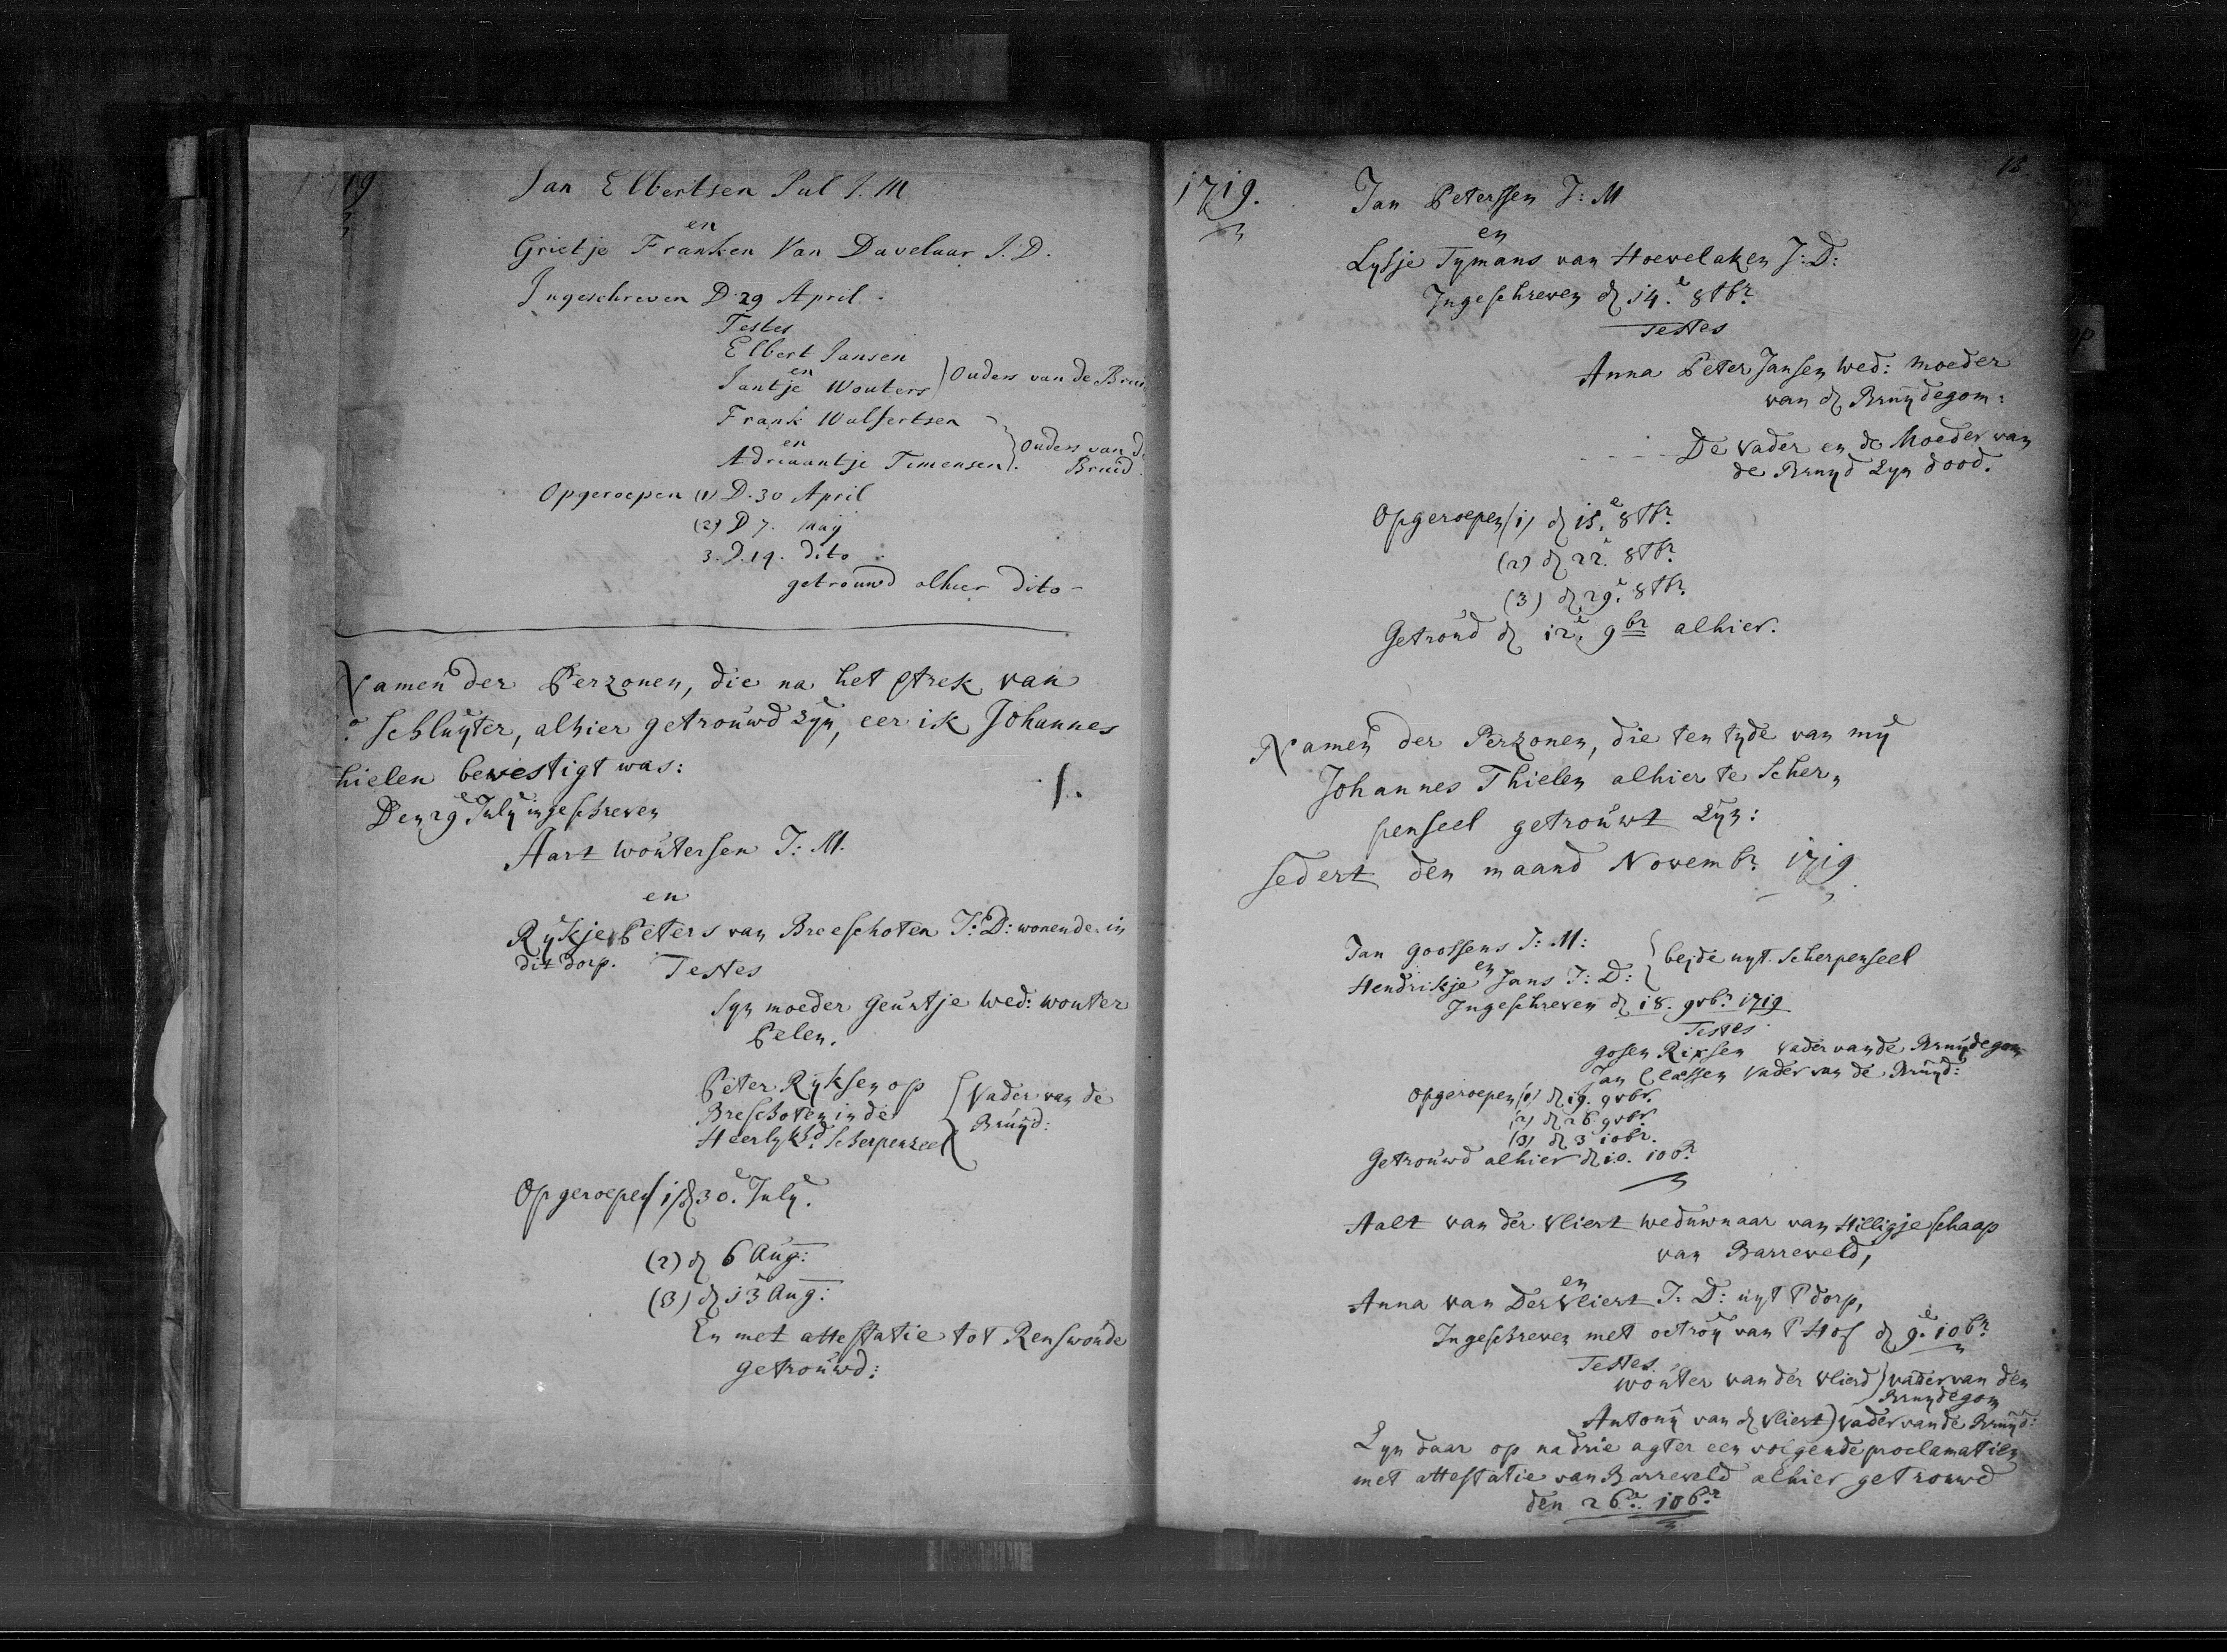 1719
Jan Elbertsen Pul J. M
en
Grietje Franken Van Davelaar J. D.
Ingeschreven D. 29 April.
Testes
Elbert Jansen
en
Jantje Wouters } Ouders van de Brui
Frank Wulfertsen
en
Adriaantje Timensen } Ouders van d
Bruid
Opgeroepen (1) D. 30 April
(2) D 7. May
3. D. 14. dito
getrouwd alhier dito
Namen der Perzonen, die na het vertrek van
Do Schluyter, alhier getrouwd zyn, eer ik Johannes
hielen bevestigt was:
Den 29e July ingeschreven
1.
Aart Woutersen J: M.
en
Rykje Peters van Breeschoten J: D: wonende in
dit dorp.
Testes
Syn moeder Geurtje wed: Wouter
Pelen.
Peter Ryksen op
Breschoten in de
Heerlykhd Scherpenzeel { Vader van de
Bruyd:
Opgeroepen (1) d 30e July.
(2) d 6 Aug:
(3) d 13 Aug:
En met attestatie tot Renswoude
getrouwd:
15.
1719.
Jan Peterssen J: M
en
Lysje Tymans van Hoevelaken J: D:
Ingeschreven d 14e 8tbr
Testes
Anna Peter Jansen wed: moeder
van d Bruydegom:
De Vader en de Moeder van
de Bruyd zyn dood.
Opgeroepen (1) d 15e 8tbr
(2) d 22e 8tbr
(3) d 29e 8tbr
Getroud d 12e 9br alhier.
Namen der Perzonen, die ten tyde van my
Johannes Thielen alhier te Scher,,
penseel getrouwt zyn:
sedert den maand Novembr 1719
Jan Goossens J: M:
en
Hendrikje Jans J: D: } beyde uyt Scherpenseel
Ingeschreven d 18. 9vbr 1719
Testes
Gosen Rixsen Vader van de Bruydegom
Jan Claessen Vader van de Bruyd:
Opgeroepen (1) d 19. 9vbr.
(2) d 26 9vbr
(3) d 3 10br.
Getrouwd alhier d 10. 10br
Aalt van der Vliert weduwnaar van Hilligje Schaap
van Barreveld,
en
Anna van Der Vliert J: D: uyt t dorp,
Ingeschreven met octroy van t Hof d 9e 10br
Testes.
Wouter van der Vlierd ) vader van den
Bruydegom
Antony van d Vliert ) vader van de Bruyd:
Zyn daar op na drie agter een volgende proclamatien
met attestatie van Barreveld alhier getrouwd
den 26e 10br